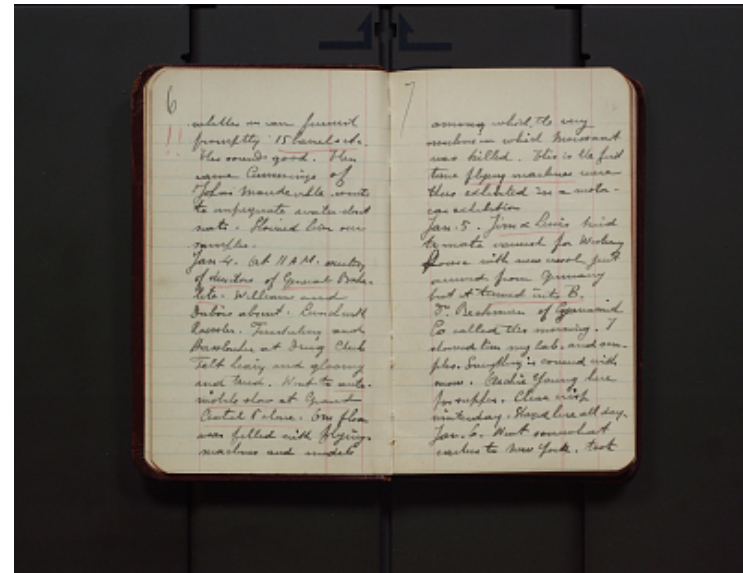 6
whether we can furnish
promptly 15 barrels etc.
!! This sounds good. Then
came Cummings of
Johns Manville wants
to impregnate asbestos
. Showed him our
samples.
Jan 4. At 11 A.M. meeting
of directors of General Bake-
lite. Williams and
Dubois absent. Lunch with
Roessler. and
Hasslacher at Drug Club
Felt heavy and gloomy
and tired. Went to auto-
mobile show at Grand
Central Palace. One floor
was filled with flying
machines and models
7
among which the very
machine in which Moissant
was killed. This is the first
time flying machines were
thus exhibited in a motor-
car exhibition
Jan. 5. Jim & Lewis tried
to make varnish for
House with new resol just
arrived from Germany
but it turned into B.
Dr. of Cyanamid
Co called this morning. I
showed him my lab. and sam-
ples. Everything is covered with
snow. Archie Young here
for supper. Clear crisp
winterday. Stayed here all day.
Jan. 6. Went somewhat
earlier to New York. took